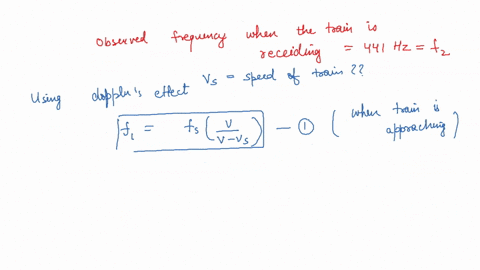 Observed frequency when the train is
receiding = 441 Hz = f₂
Using doppler's effect Vs = speed of train ??
f₁ = fs (V / V-Vs) — ① (when train is
approaching)